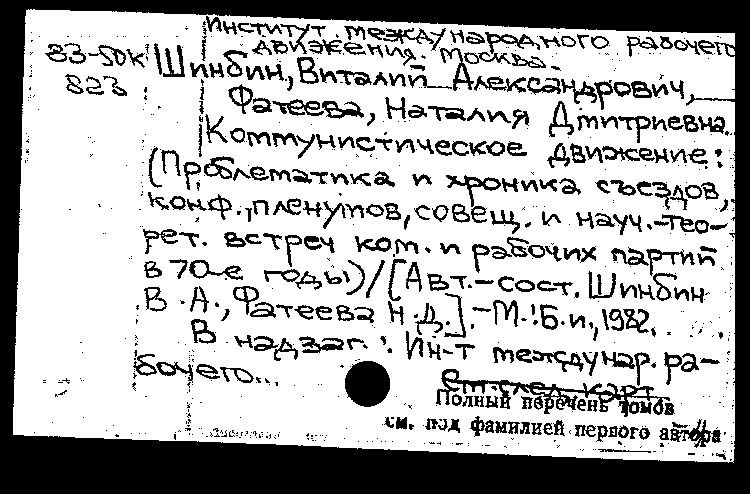 Институт международного рабочего
движения. Москва.
83-5DK
823
Шинбин, Виталий Александрович,
Фатеева, Наталия Дмитриевна
Коммунистическое движение:
(Проблематика и хроника съездов,
конф., пленумов, совещ. и науч.-тео-
рет. встреч ком. и рабочих партий
в 70-е годы)/[Авт.-сост. Шинбин
В.А., Фатеева Н.Д.].-М.:Б.и., 1982.
В надзаг.: Ин-т междунар. ра-
бочего...
См. след. карт
Полный перечень томов
см. под фамилией первого автора